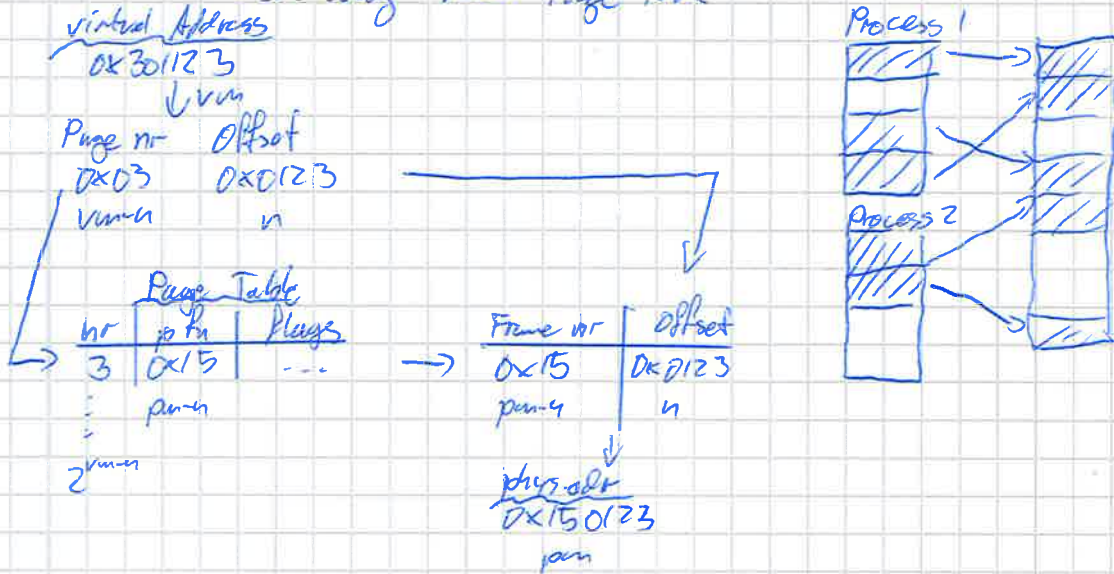 Page
virtual Address
0x30123
↓ vm
Page nr Offset
0x03 0x0123
vm-n n
Page Table
nr pfn Flags
3 0x15 ...
pm-n
⋮
2^vm-n
Frame nr offset
0x15 0x0123
pm-n n
phys. adr
0x150123
pm
Process 1
Process 2